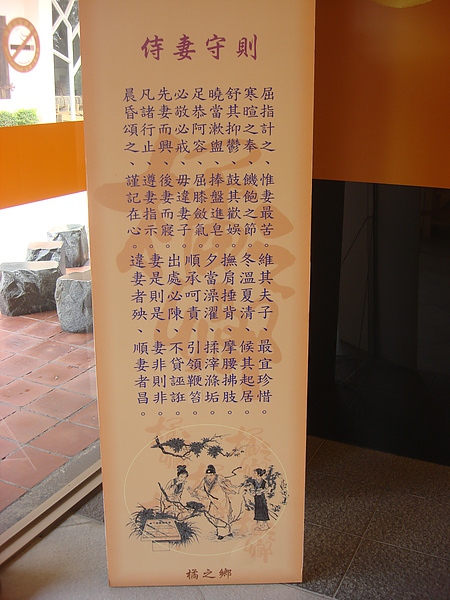 侍妻守則
屈指計之、惟妻最苦。維其夫子、最宜珍惜。
寒暄之奉、饑飽之節。冬溫夏清、候其起居。
舒其抑鬱、鼓其歡娛。撫肩捶背、摩腰拂肢。
曉當漱盥、捧盤進皂。夕當澡濯、揉滓滌垢。
足恭阿容、屈膝斂氣。順承呵責、引領鞭笞。
必敬必戒、毋違妻子。出處必陳、不貸誣誑。
先妻而興、後妻而寢。
凡諸行止、遵妻指示。妻是則是、妻非則非。
晨昏頌之、謹記在心。違妻者殃、順妻者昌。
橘之鄉